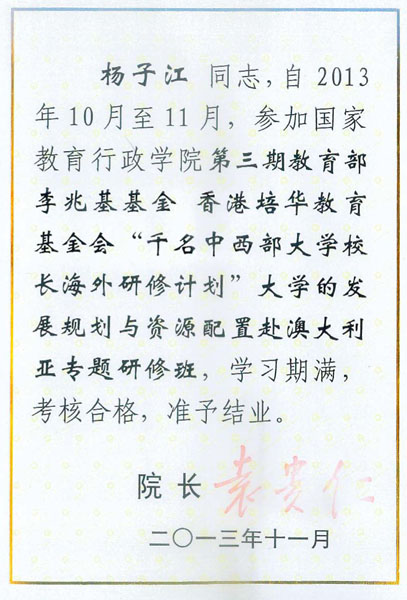 杨子江 同志，自 2013
年 10 月至 11 月，参加国家
教育行政学院第三期教育部
李兆基基金 香港培华教育
基金会“千名中西部大学校
长海外研修计划”大学的发
展规划与资源配置赴澳大利
亚专题研修班，学习期满，
考核合格，准予结业。
院 长 袁贵仁
二〇一三年十一月